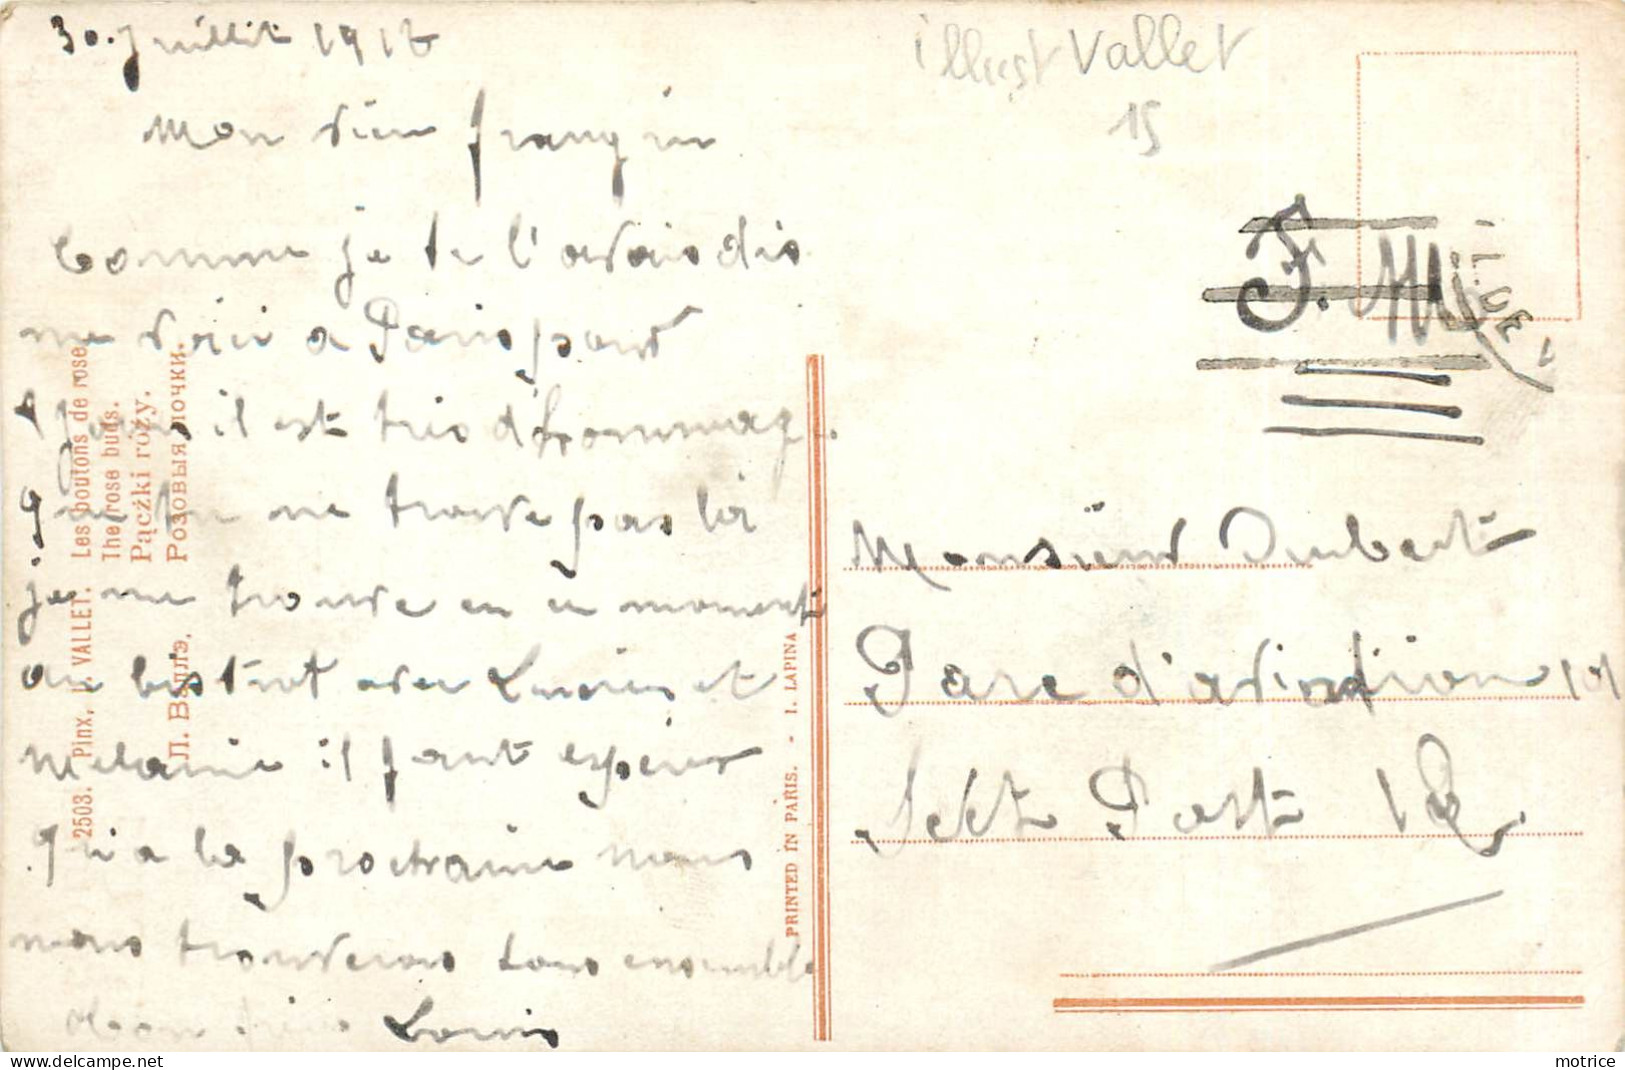 30 juillet 1916
Mon vieu frangin
Comme je te l'avais dis
me voici a Paris pour
il est très d'hommage
que tu ne trouve pas là
je me trouve en ce moment
au bistrot avec Lucien et
Melanie il faut espérer
qu'a la prochaine nous
nous trouverons tous ensemble
Louis
2503. Pinx, L. VALLET. Les boutons de rose.
The rose buds.
Pączki roży.
Л. Валлэ. Розовыя почки.
PRINTED IN PARIS. - I. LAPINA
illust Vallet
15
F. M
Monsieur Imbert
Parc d'aviation 101
Sect Post 12
motrice